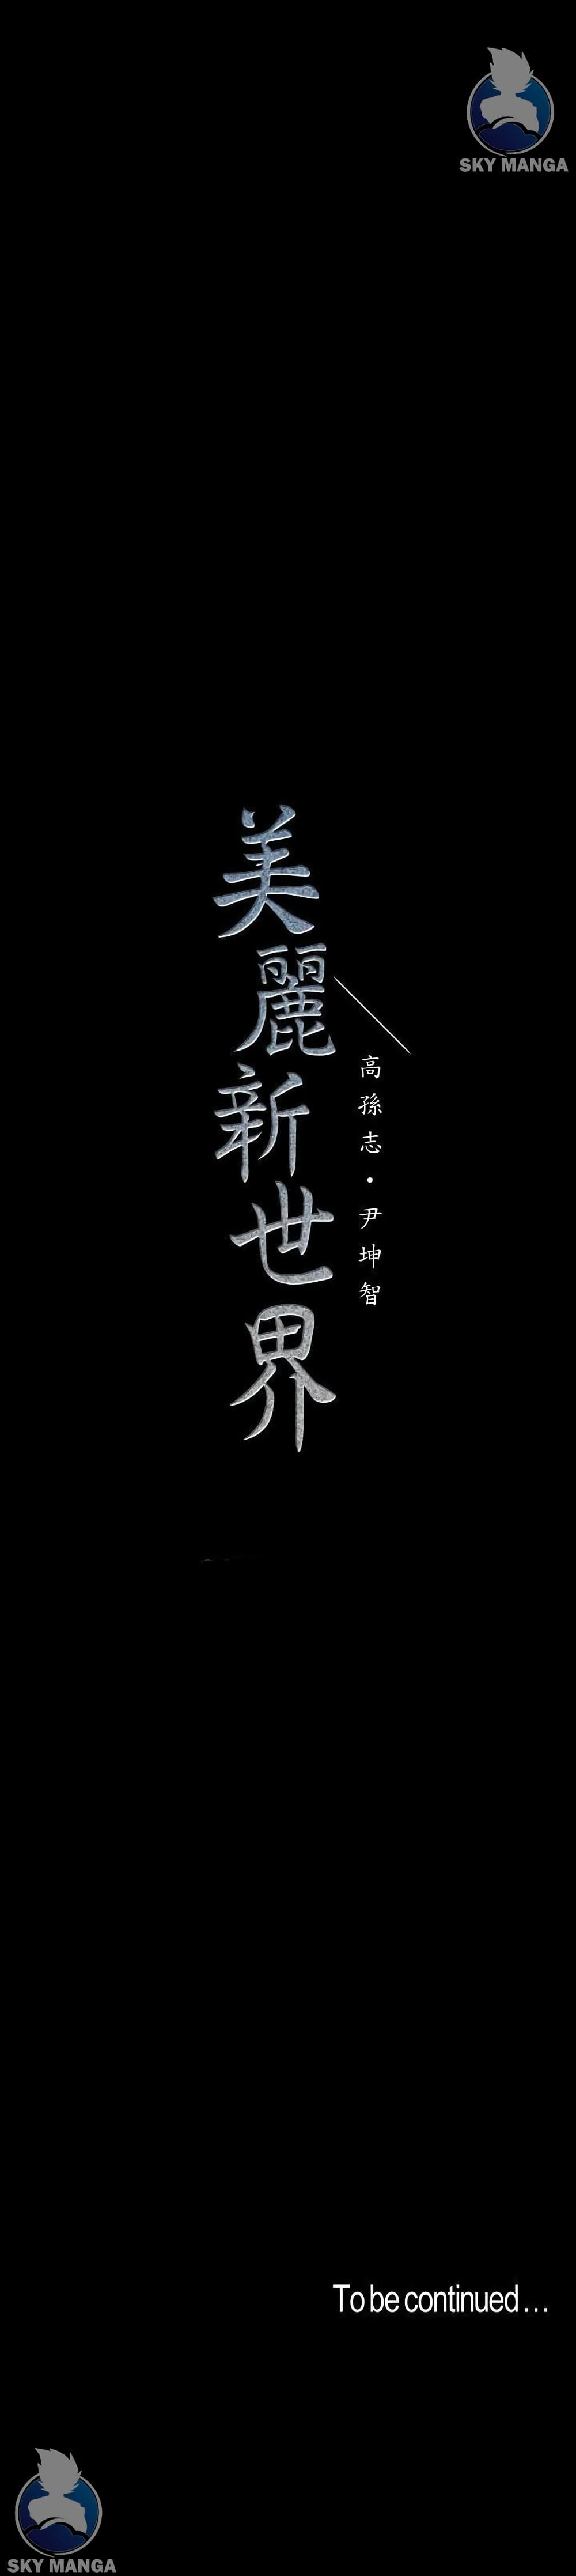 SKY MANGA
美麗新世界
高孫志・尹坤智
To be continued ...
SKY MANGA